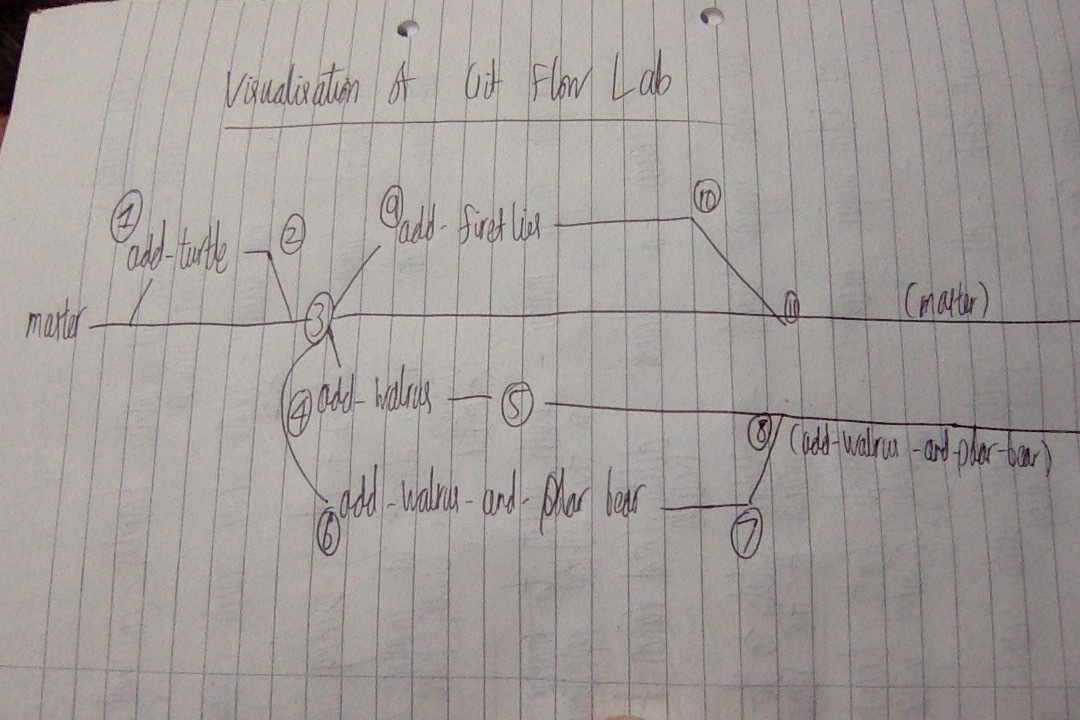 Visualisation of Git Flow Lab
① add-turtle ②
⑨ add-fireflies ⑩
master ③ ⑪ (master)
④ add-walrus ⑤
⑧ (add-walrus-and-polar-bear)
⑥ add-walrus-and-polar bear ⑦